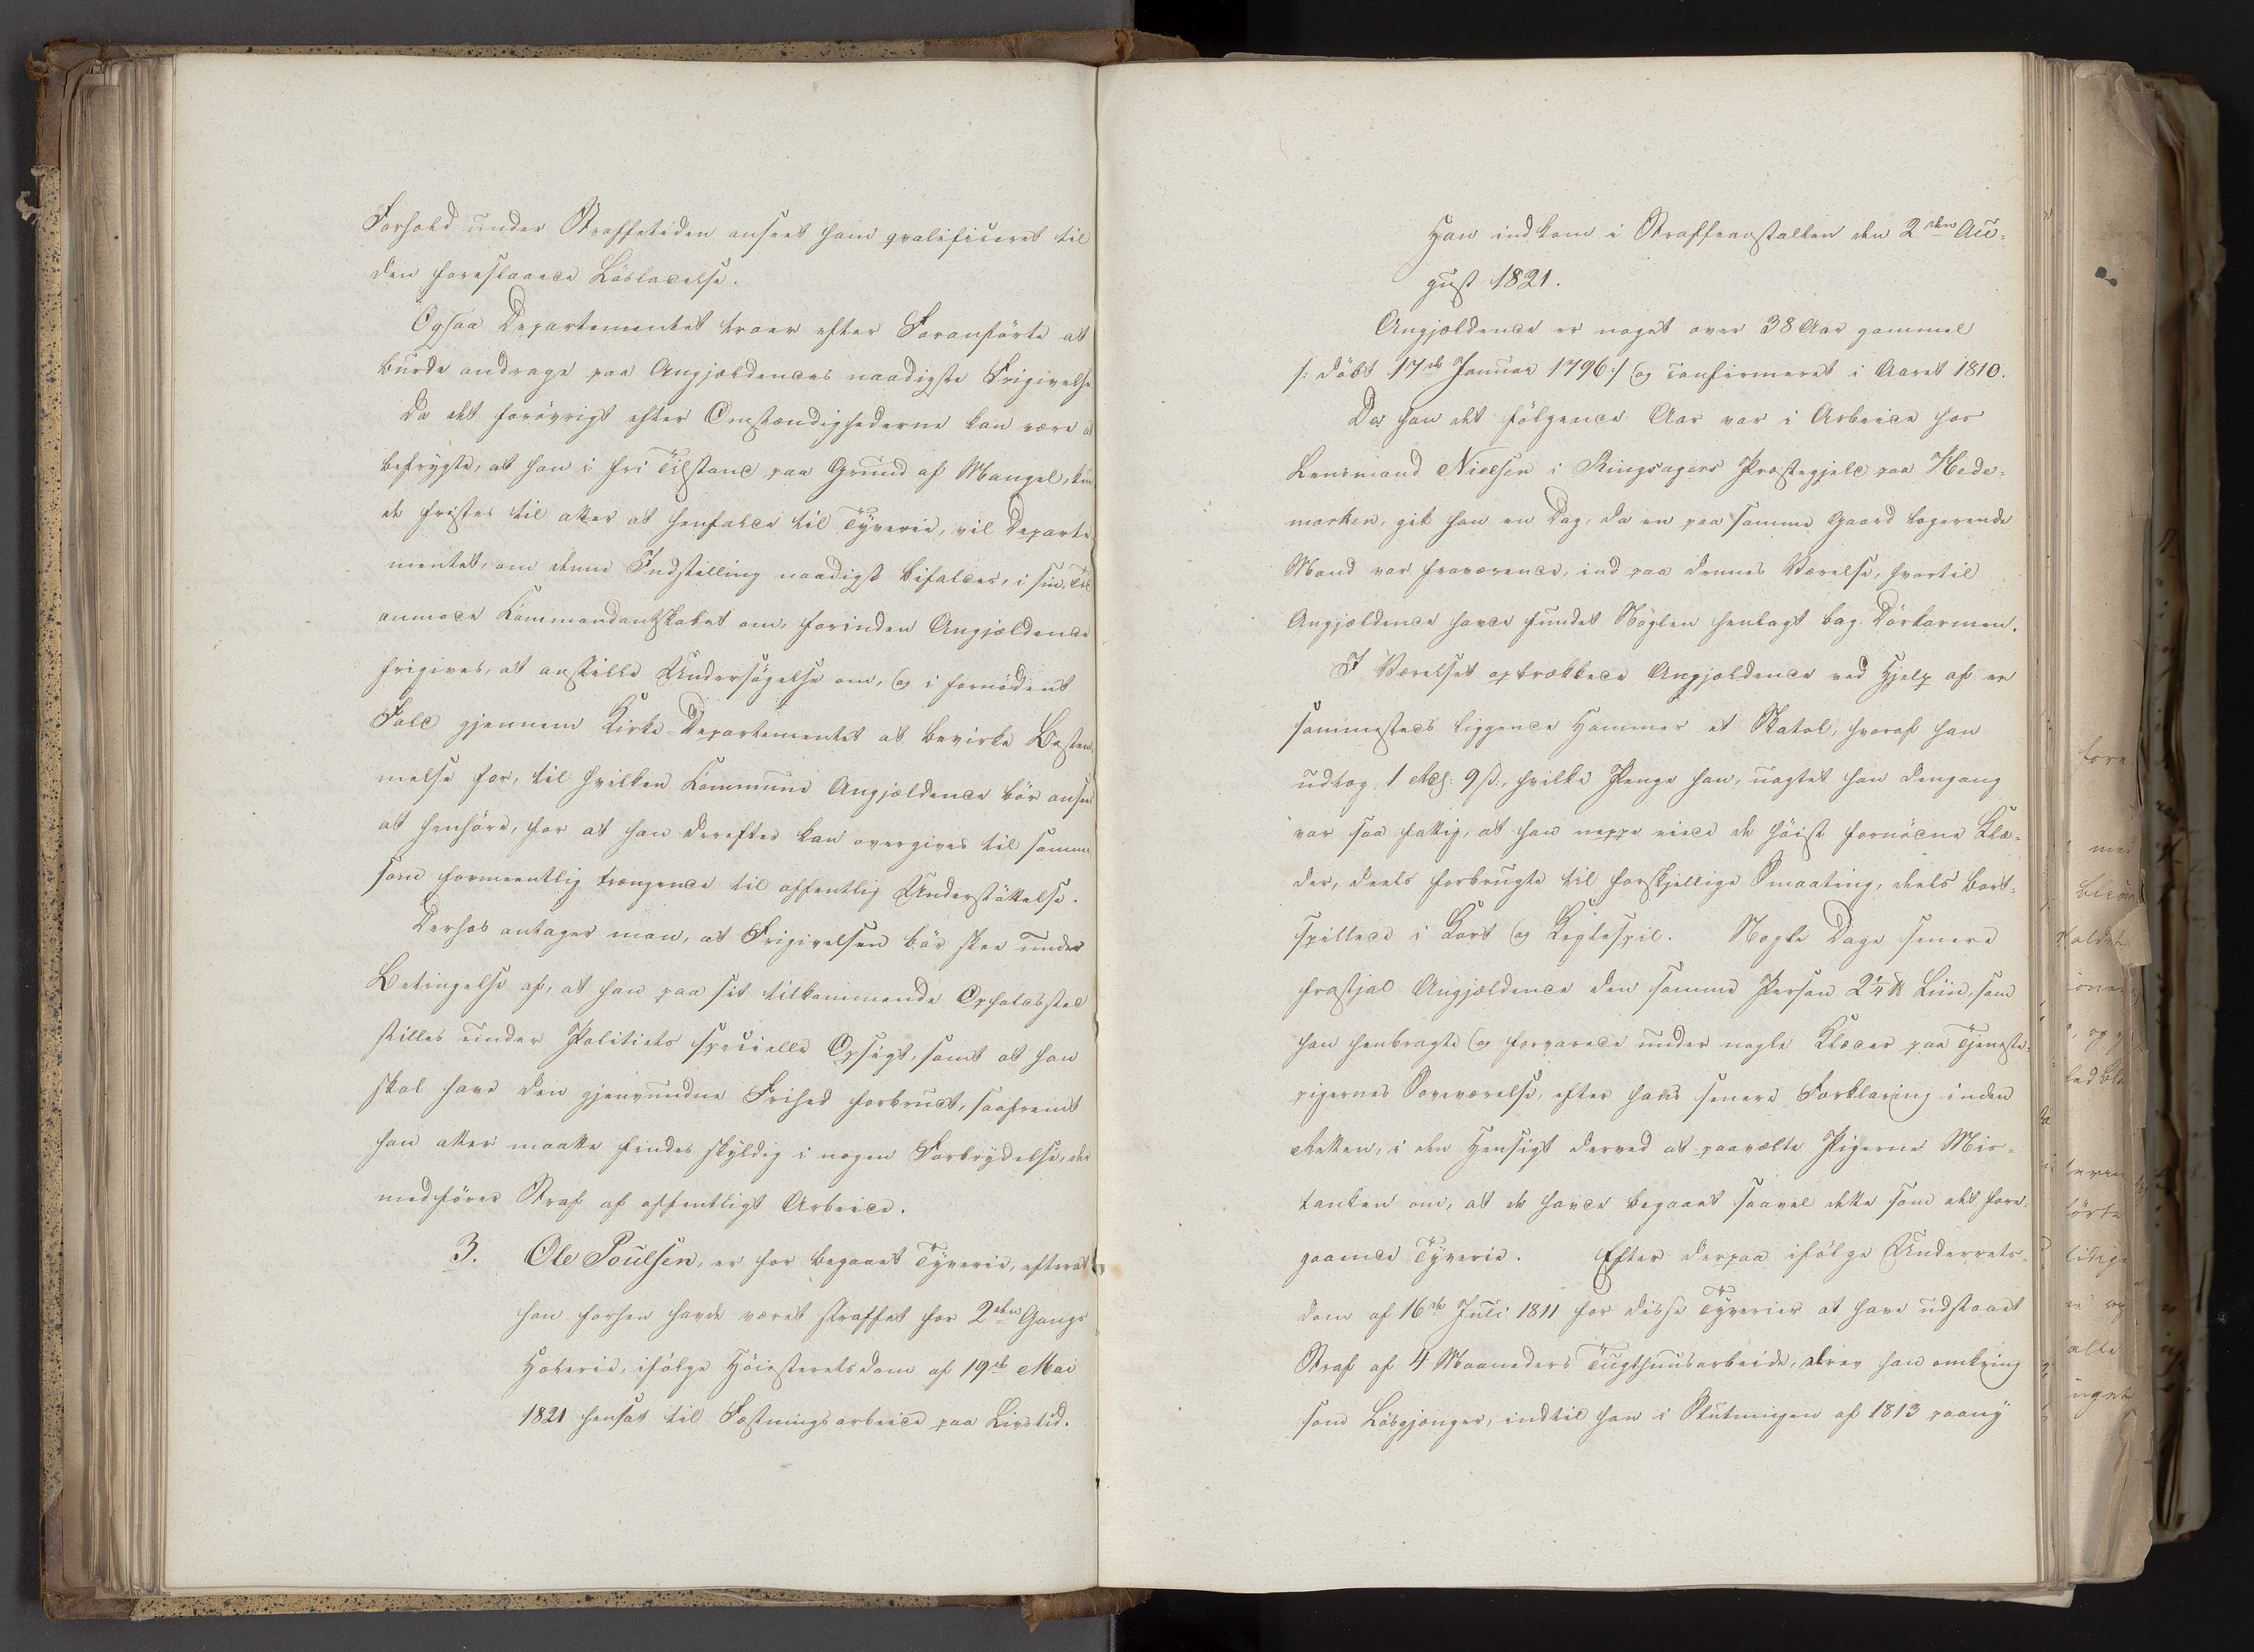 Forhold under Straffetiden anseet ham qvalificeret til
den foreslaaede Løsladelse.
Ogsaa Departementet troer efter Foranførte at
burde andrage paa Angjældendes naadigste Frigivelse
Da det forøvrigt efter Omstændighederne kan være at
befrygte, at han i fri Tilstand paa Grund af Mangel, kun
de fristes til atter at henfalde til Tyverie, vil Departe
mentet, om denne Indstilling naadigst bifaldes, i sin Tid
anmode Kommandantskabet om, forinden Angjældende
frigives, at anstille Undersøgelse om, og i fornødent
Fald gjennem Kirke-Departementet at bevirke Bestem-
melse for, til hvilken Kommune Angjældende bør ansees
at henhøre, for at han derefter kan overgives til samme
som formeentlig trængende til offentlig Understøttelse.
Derhos antager man, at Frigivelsen bør skee under
Betingelse af, at han paa sit tilkommende Opholdssted
stilles under Politiets specielle Opsigt, samt at han
skal have den gjenvundne Frihed forbrudt, saafremt
han atter maatte findes skyldig i nogen Forbrydelse, der
medfører Straf af offentligt Arbeide.
3. Ole Poulsen, er for begaaet Tyverie, efterat
han forhen havde været straffet for 2den Gangs
Hælerie, ifølge Høiesteretsdom af 19de Mai
1821 hensat til Fæstningsarbeide paa Livstid.
Han indkom i Straffeanstalten den 2den Au-
gust 1821.
Angjældende er noget over 38 Aar gammel
/: døbt 17de Januar 1796:/ og confirmeret i Aaret 1810.
Da han det følgende Aar var i Arbeide hos
Lensmand Nielsen i Ringsagers Præstegjeld paa Hede-
marken, gik han en Dag, da en paa samme Gaard logerende
Mand var fraværende, ind paa dennes Værelse, hvortil
Angjældende havde fundet Nøglen henlagt bag Dørkarmen.
I Værelset opbrækkede Angjældende ved Hjelp af en
sammesteds liggende Hammer et Skatol, hvoraf han
udtog 1 Rd: 9 ß., hvilke Penge han, uagtet han dengang
var saa fattig, at han neppe eiede de høist fornødne Klæ-
der, deels forbrugte til forskjellige Smaating, deels bort-
spillede i Kort og Keglespil. Nogle Dage senere
frastjal Angjældende den samme Person 2 1/4 ℔ Liin, som
han henbragte og forvarede under nogle Klæder paa Tjeneste-
pigernes Soveværelse, efter hans senere Forklaring inden
Retten, i den Hensigt derved at paavælte Pigerne Mis-
tanken om, at de havde begaaet saavel dette som det fore-
gaaende Tyverie. Efter derpaa ifølge Underrets-
dom af 16de Juli 1811 for disse Tyverier at have udstaaet
Straf af 4 Maaneders Tugthuusarbeide, drev han omkring
som Løsgjænger, indtil han i Slutningen af 1813 paany